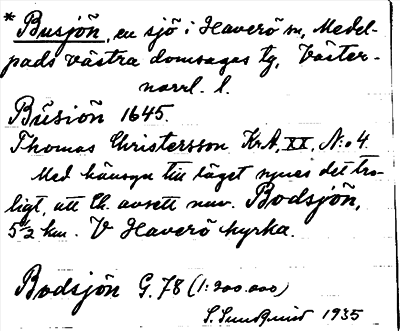 * Busjön, en sjö i Haverö sn, Medel-
pads västra domsagas tg, Väster-
norrl. l.
Büsiön 1645.
Thomas Christersson KrA, XX, N:o 4.
Med hänsyn till läget synes det tro-
ligt, att Ch. avsett nuv. Bodsjön,
5½ km. V Haverö kyrka.
Bodsjön G. 78 (1:200.000)
S. Sundquist 1935